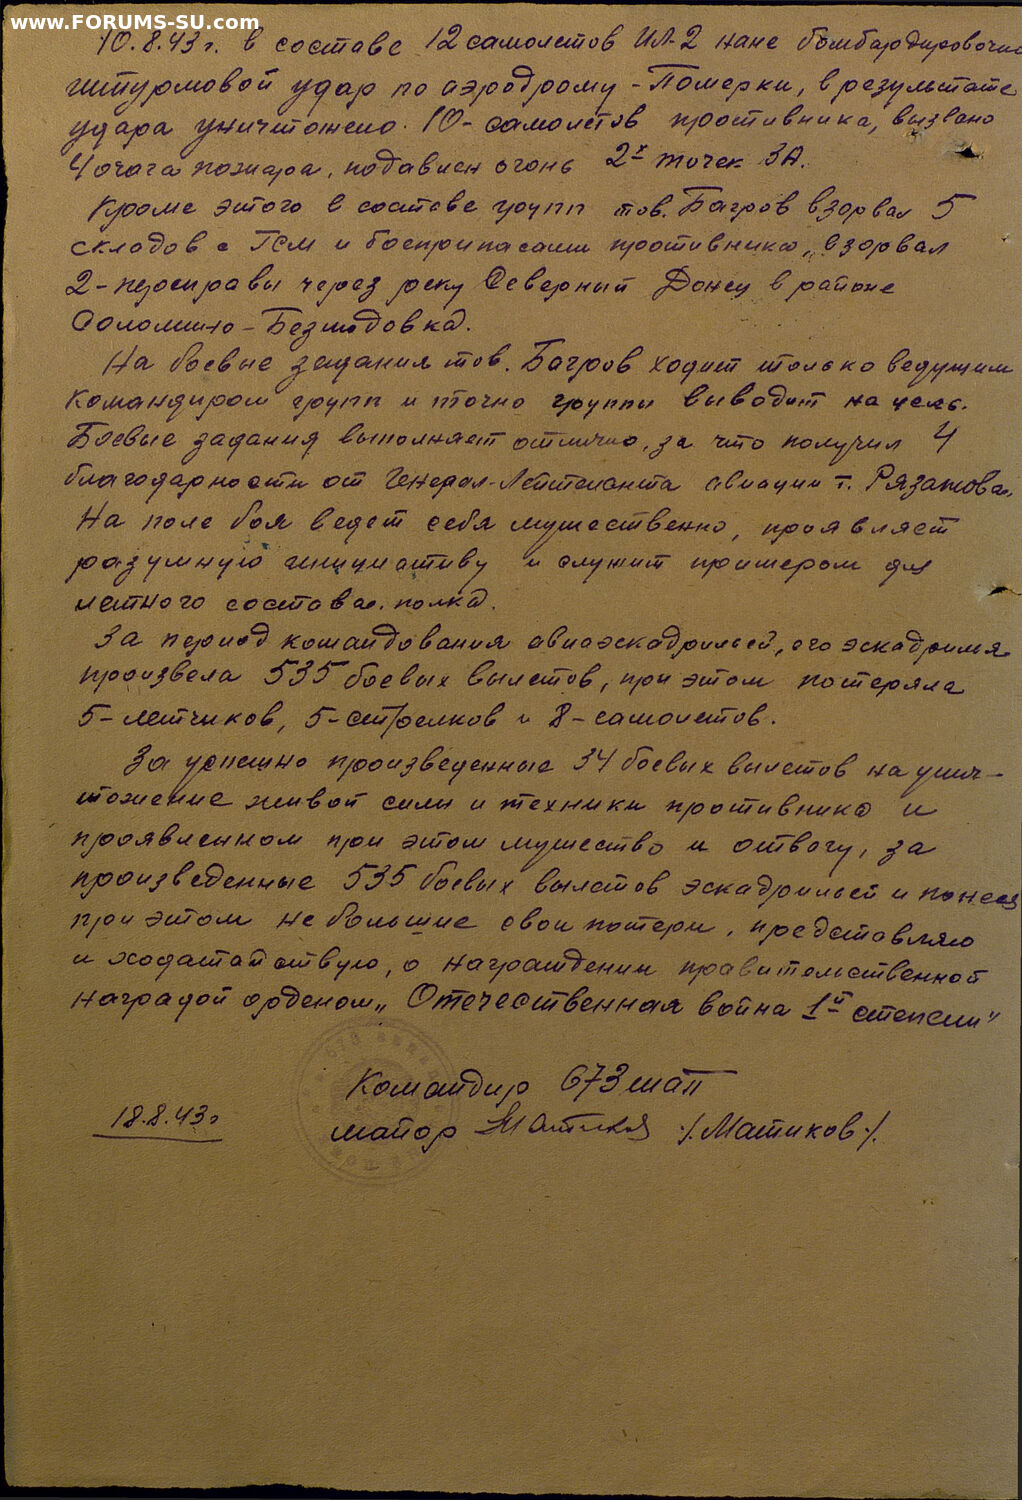 www.FORUMS-SU.com
10.8.43 г. в составе 12 самолетов ИЛ-2 нанес бомбардировочно
штурмовой удар по аэродрому - Померки, в результате
удара уничтожено 10- самолетов противника, вызвано
4 очага пожара, подавлен огонь 2х точек ЗА.
Кроме этого в составе групп тов. Багров взорвал 5
складов с ГСМ и боеприпасами противника, взорвал
2-переправы через реку Северный Донец в районе
Соломино - Безлюдовка.
На боевые задания тов. Багров ходит только ведущим
командиром групп и точно группы выводит на цель.
Боевые задания выполняет отлично, за что получил 4
благодарности от Генерал-Лейтенанта авиации т. Рязанова.
На поле боя ведет себя мужественно, проявляет
разумную инициативу и служит примером для
летного состава полка.
За период командования авиаэскадрильей, его эскадрилья
произвела 535 боевых вылетов, при этом потеряла
5-летчиков, 5-стрелков и 8-самолетов.
За успешно произведенные 34 боевых вылетов на унич-
тожение живой силы и техники противника и
проявленном при этом мужество и отвагу, за
произведенные 535 боевых вылетов эскадрильей и понеся
при этом не большие свои потери, представляю
и ходатайствую, о награждении правительственной
наградой орденом „Отечественная война 1й степени"
Командир 673 шап
18.8.43г
майор /Матиков/